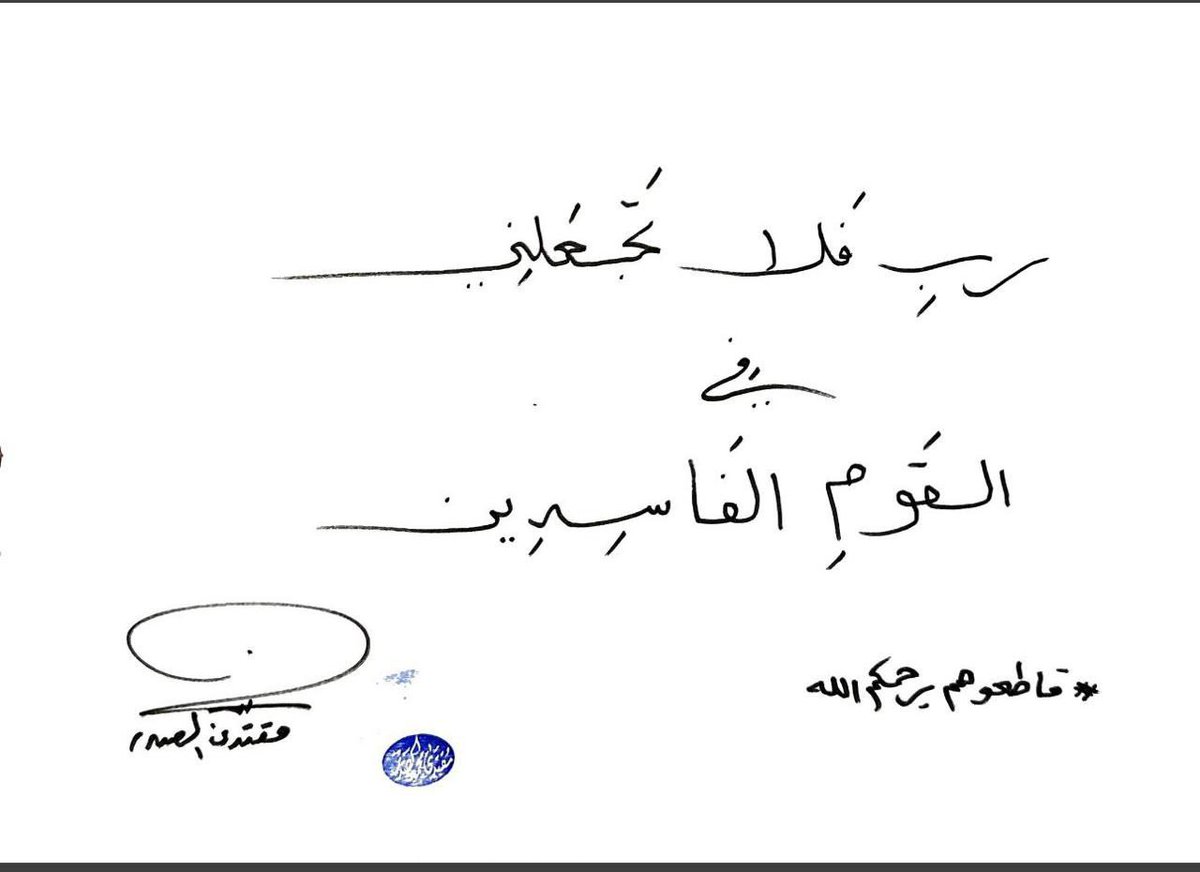 ربِ فَلا تَجْعَلنِي
فِي
القَومِ الفَاسِدِين
* قاطعوهم يرحمكم الله
مقتدى الصدر